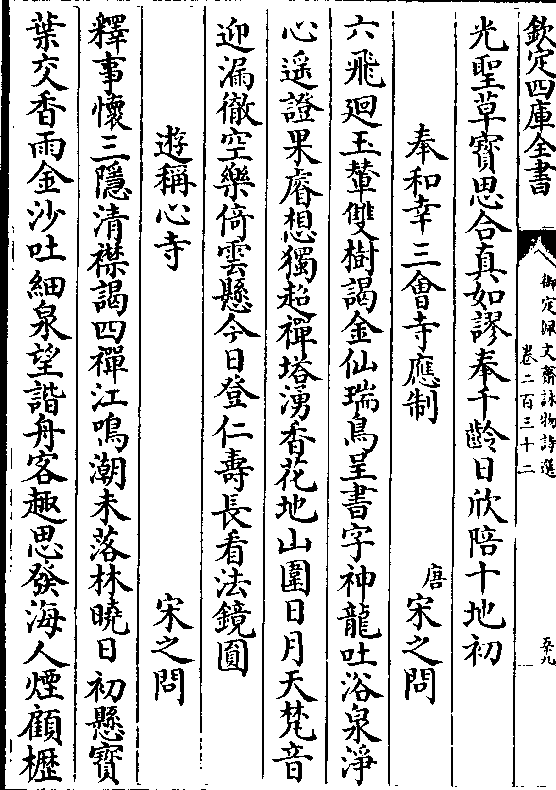 欽定四庫全書
御定佩文齋詠物詩選
卷二百三十二
光聖草寳思合真如謬奉千齡日欣陪十地初
奉和幸三會寺應制
唐
宋之問
六飛廻玉輦雙樹謁金仙瑞鳥呈書字神龍吐浴泉淨
心遥證果睿想獨超禪塔湧香花地山圍日月天梵音
迎漏徹空樂倚雲懸今日登仁壽長看法鏡圓
遊稱心寺
宋之問
釋事懷三隠清襟謁四禪江鳴潮未落林曉日初懸寳
葉交香雨金沙吐細泉望諧舟客趣思發海人煙顧櫪